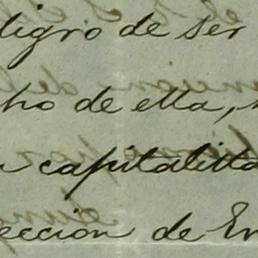 ligro de ser
ho de ella,
capitalitta
ección de En